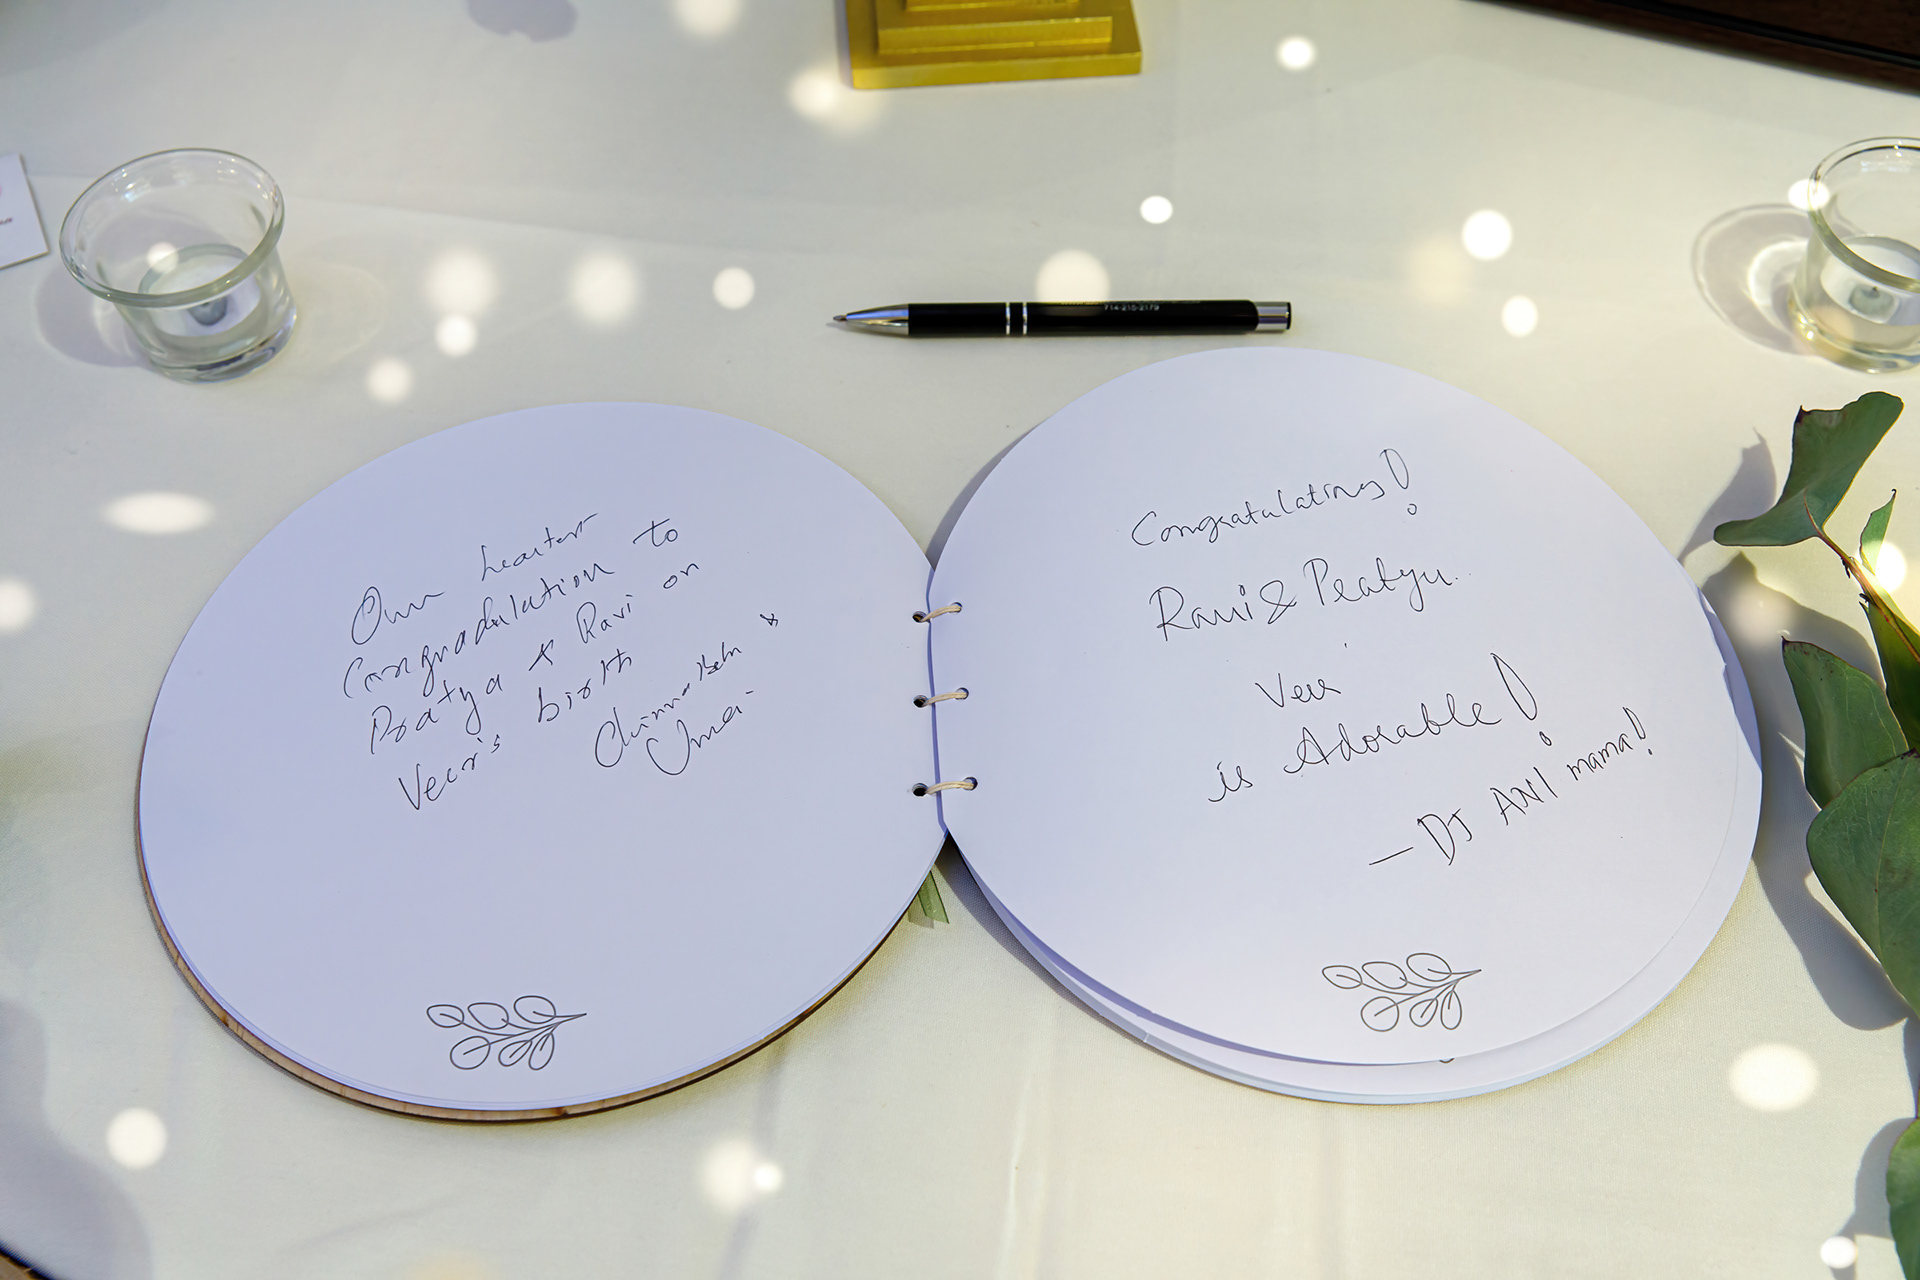 714-215-2179
Our heartest
Congradulation to
Pratya & Ravi on
Veer's birth
Chinnabehn &
Umai
Congratulations!
Ravi & Pratyu.
Veer
is Adorable!
— DJ ANI mama!